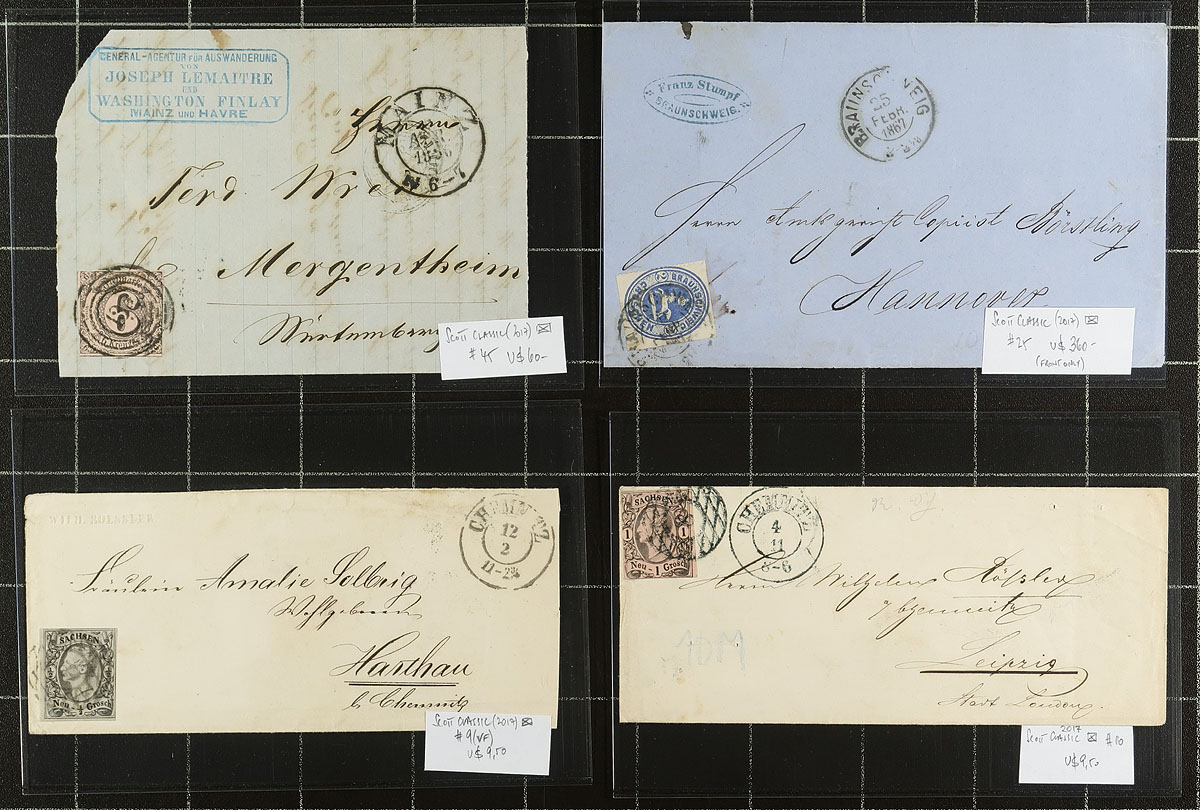 GENERAL-AGENTUR FÜR AUSWANDERUNG
VON
JOSEPH LEMAITRE
UND
WASHINGTON FINLAY
MAINZ UND HAVRE
MAINZ
N 6-7
Herrn
Ferd
Mergentheim
Würtemberg
3
SCOTT CLASSIC (2017)
#45 U$ 60-
Franz Stumpf
BRAUNSCHWEIG.
BRAUNSCHWEIG
25
FEBR.
1867
Herrn Amtsgericht Copiist Börstling
Hannover
SCOTT CLASSIC (2017)
#25 U$ 360-
(FRONT ONLY)
CHEMNITZ
12
2
Fräulein Amalie Solbrig
Wohlgeboren
Harthau
b. Chemnitz
SACHSEN
Neu - Grosch
SCOTT CLASSIC (2017)
#9 (VF)
U$ 9,50
SACHSEN
1 1
Neu - 1 Grosch
CHEMNITZ
4
11
Herrn
Leipzig
Stadt London.
2017
SCOTT CLASSIC #10
U$ 9,50